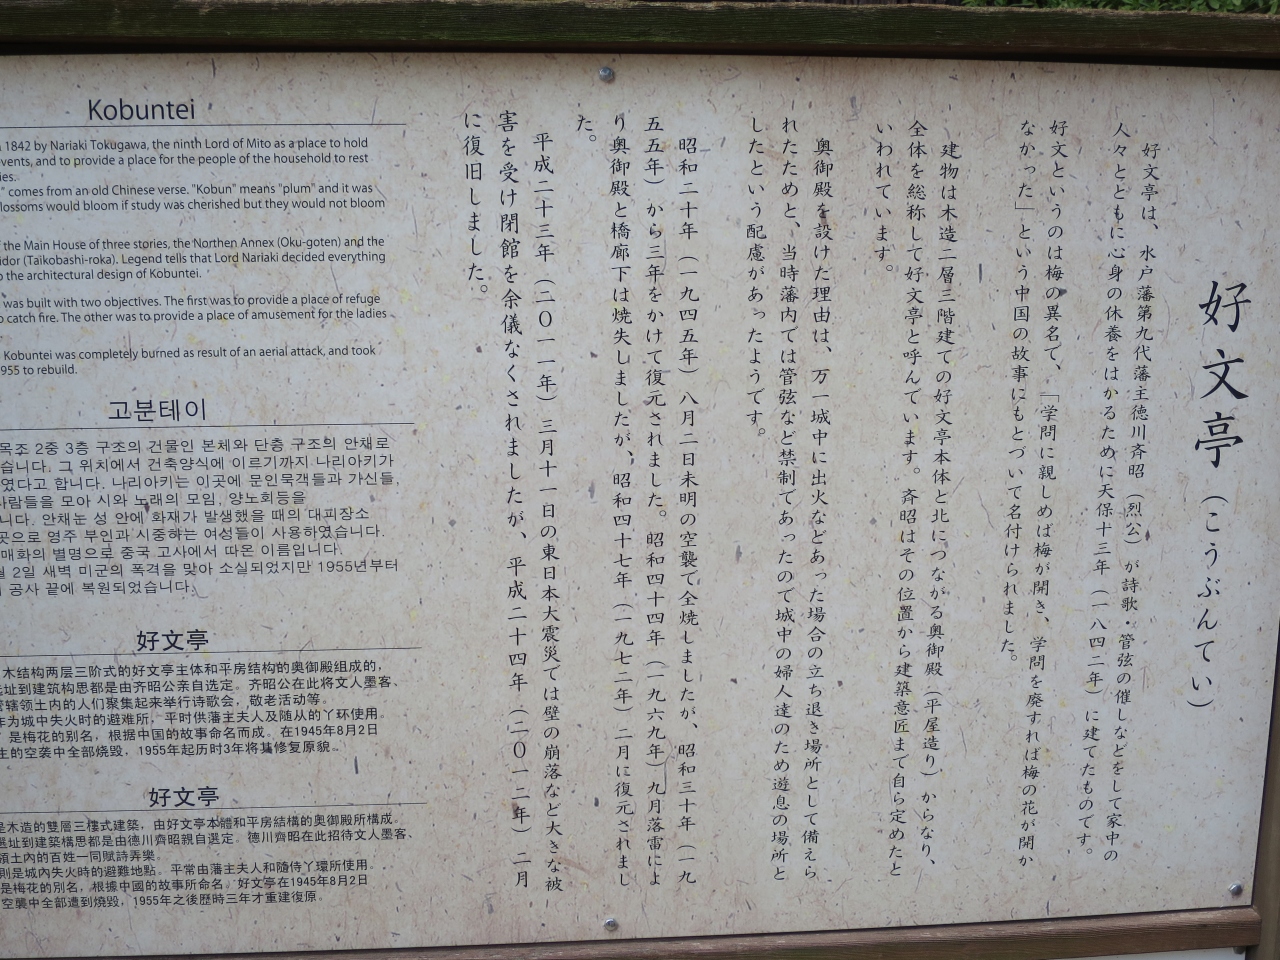 好文亭（こうぶんてい）
好文亭は、水戸藩第九代藩主徳川斉昭（烈公）が詩歌・管弦の催しなどをして家中の
人々とともに心身の休養をはかるために天保十三年（一八四二年）に建てたものです。
好文というのは梅の異名で、「学問に親しめば梅が開き、学問を廃すれば梅の花が開か
なかった」という中国の故事にもとづいて名付けられました。
建物は木造二層三階建ての好文亭本体と北につながる奥御殿（平屋造り）からなり、
全体を総称して好文亭と呼んでいます。斉昭はその位置から建築意匠まで自ら定めたと
いわれています。
奥御殿を設けた理由は、万一城中に出火などあった場合の立ち退き場所として備えら
れたためと、当時藩内では管弦など禁制であったので城中の婦人達のため遊息の場所と
したという配慮があったようです。
昭和二十年（一九四五年）八月二日未明の空襲で全焼しましたが、昭和三十年（一九
五五年）から三年をかけて復元されました。昭和四十四年（一九六九年）九月落雷によ
り奥御殿と橋廊下は焼失しましたが、昭和四十七年（一九七二年）二月に復元されまし
た。
平成二十三年（二〇一一年）三月十一日の東日本大震災では壁の崩落など大きな被
害を受け閉館を余儀なくされましたが、平成二十四年（二〇一二年）二月
に復旧しました。
Kobuntei
1842 by Nariaki Tokugawa, the ninth Lord of Mito as a place to hold
vents, and to provide a place for the people of the household to rest
ies.
" comes from an old Chinese verse. "Kobun" means "plum" and it was
lossoms would bloom if study was cherished but they would not bloom
f the Main House of three stories, the Northen Annex (Oku-goten) and the
idor (Taikobashi-roka). Legend tells that Lord Nariaki decided everything
o the architectural design of Kobuntei.
was built with two objectives. The first was to provide a place of refuge
o catch fire. The other was to provide a place of amusement for the ladies
Kobuntei was completely burned as result of an aerial attack, and took
955 to rebuild.
고분테이
목조 2중 3층 구조의 건물인 본체와 단층 구조의 안채로
습니다. 그 위치에서 건축양식에 이르기까지 나리아키가
였다고 합니다. 나리아키는 이곳에 문인묵객들과 가신들,
사람들을 모아 시와 노래의 모임, 양노회등을
니다. 안채는 성 안에 화재가 발생했을 때의 대피장소
곳으로 영주 부인과 시중하는 여성들이 사용하였습니다.
매화의 별명으로 중국 고사에서 따온 이름입니다.
월 2일 새벽 미군의 폭격을 맞아 소실되었지만 1955년부터
공사 끝에 복원되었습니다.
好文亭
木结构两层三阶式的好文亭主体和平房结构的奥御殿组成的，
址到建筑构思都是由齐昭公亲自选定。齐昭公在此将文人墨客、
管辖领土内的人们聚集起来举行诗歌会，敬老活动等。
作为城中失火时的避难所，平时供藩主夫人及随从的丫环使用。
是梅花的别名，根据中国的故事命名而成。在1945年8月2日
生的空袭中全部烧毁，1955年起历时3年将其修复原貌。
好文亭
是木造的雙層三樓式建築，由好文亭本體和平房結構的奧御殿所構成。
選址到建築構思都是由德川齊昭親自選定。德川齊昭在此招待文人墨客、
領土內的百姓一同賦詩弄樂。
則是城內失火時的避難地點。平常由藩主夫人和隨侍丫環所使用。
是梅花的別名，根據中國的故事所命名。好文亭在1945年8月2日
空襲中全部遭到燒毀，1955年之後歷時三年才重建復原。